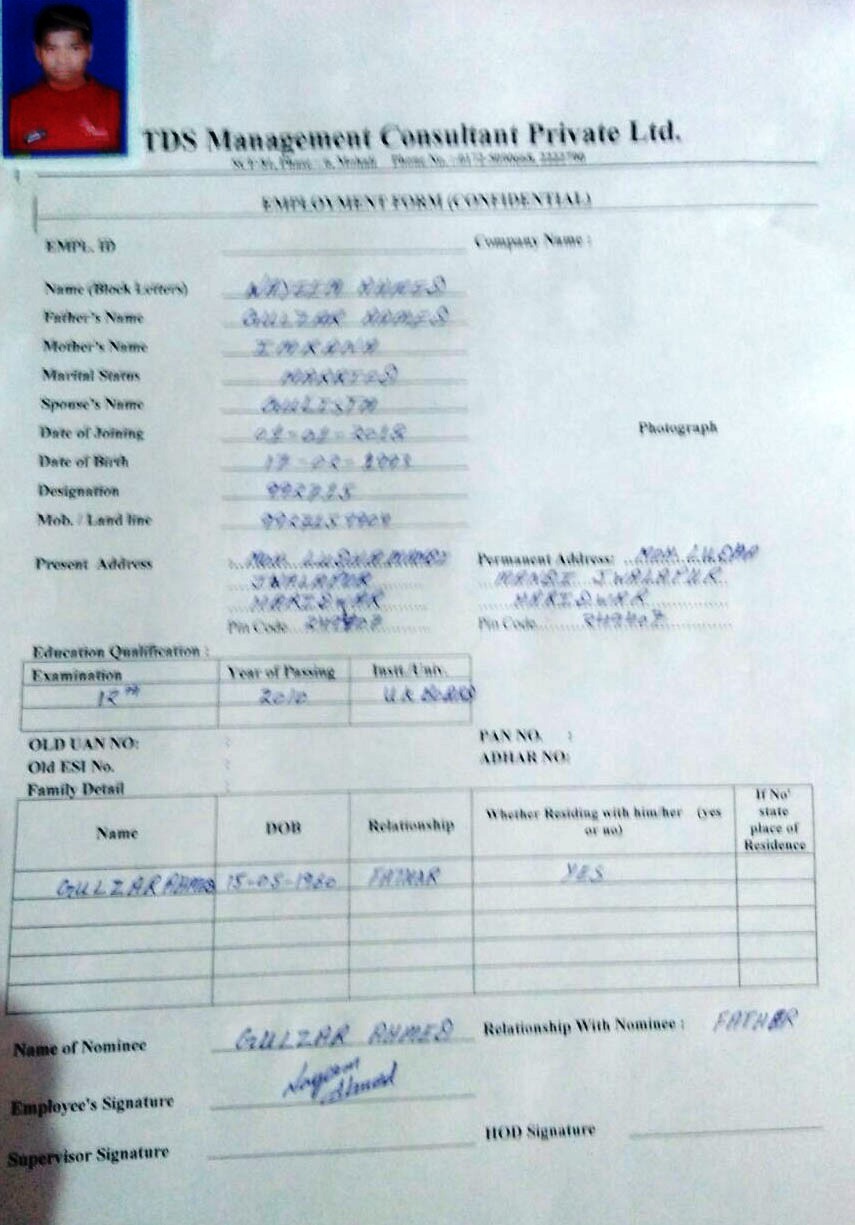 TDS Management Consultant Private Ltd.
EMPLOYMENT FORM (CONFIDENTIAL)
EMPL. ID Company Name :
Name (Block Letters) AHMED
Father's Name GULZAR AHMED
Mother's Name IMRANA
Marital Status MARRIED
Spouse's Name
Date of Joining 02-02-2018
Photograph
Date of Birth
Designation
Mob. / Land line
Present Address MOH. Permanent Address: MOH.
JWALAPUR JWALAPUR
HARIDWAR HARIDWAR
Pin Code 249407 Pin Code 249407
Education Qualification :
Examination Year of Passing Instt./Univ.
12th 2010 U.K BOARD
OLD UAN NO: : PAN NO. :
Old ESI No. : ADHAR NO:
Family Detail :
Name DOB Relationship Whether Residing with him/her (yes or no) If No' state place of Residence
GULZAR AHMED 15-05-1960 FATHAR YES
Name of Nominee GULZAR AHMED Relationship With Nominee : FATHER
Employee's Signature Ahmed
Supervisor Signature HOD Signature